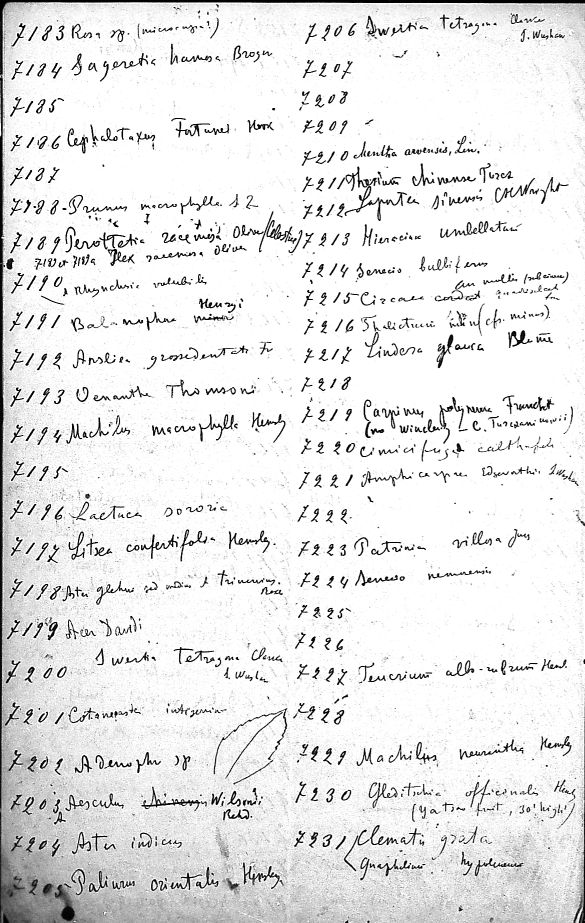 7183 Rosa sp. (microcarpa?)
7184 Sageretia hamosa Brogn
7185
7186 Cephalotaxus Fortunei Hook
7187
7188 Prunus macrophylla S Z
7189 Perottetia racemosa Oliver (Celastrus)
7189 or 7189a Ilex racemosa Oliver
7190 Rhynchosia volubilis
Henryi
7191 Balanophora minor
7192 Ainsliea grossedentata Fr
7193 Oenanthe Thomsoni
7194 Machilus macrophylla Hemsly
7195
7196 Lactuca sororia
7197 Litsea confertifolia Hemsley.
7198 Aster
trinervius.
7199 Acer Davidi
7200 Swertia tetragona Clarke
S. Wushan
7201 Cotoneaster integerrima
7202 Adenophr sp
7203 Aesculus chinensis Wilsoni
Rehd.
7204 Aster indicus
7205 Paliurus orientalis Hemsley
7206 Swertia tetragona Clarke
S. Wushan
7207
7208
7209
7210 Mentha arvensis, Lin.
7211 Thesium chinense Turcz
7212 Laportea sinensis CHWright
7213 Hieracium umbellatum
7214 Senecio bulbiferus
7215 Circaea cordata
7216 Thalictrum min (cfr. minus)
7217 Lindera glauca Blume
7218
7219 Carpinus polyneura Franchet
(no Winkler) C. Turczaninowii)
7220 Cimicifuga calthaefolia
7221 Amphicarpaea Edgworthii S Wushan
7222
7223 Patrinia villosa Juss
7224 Senecio nemorensis
7225
7226
7227 Teucrium albo-rubrum Hemsl
7228
7229 Machilus neurantha Hemsly
7230 Gleditschia officinalis Hemsl
(ya tsao fruit, 30' high)
7231 Clematis grata
Gnaphalium hypoleucum